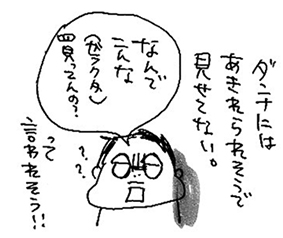 ダンナには
あきれられそうで
見せてない。
なんで
こんな
(ガラクタ)
買ってんの?
???
って
言われそう!!